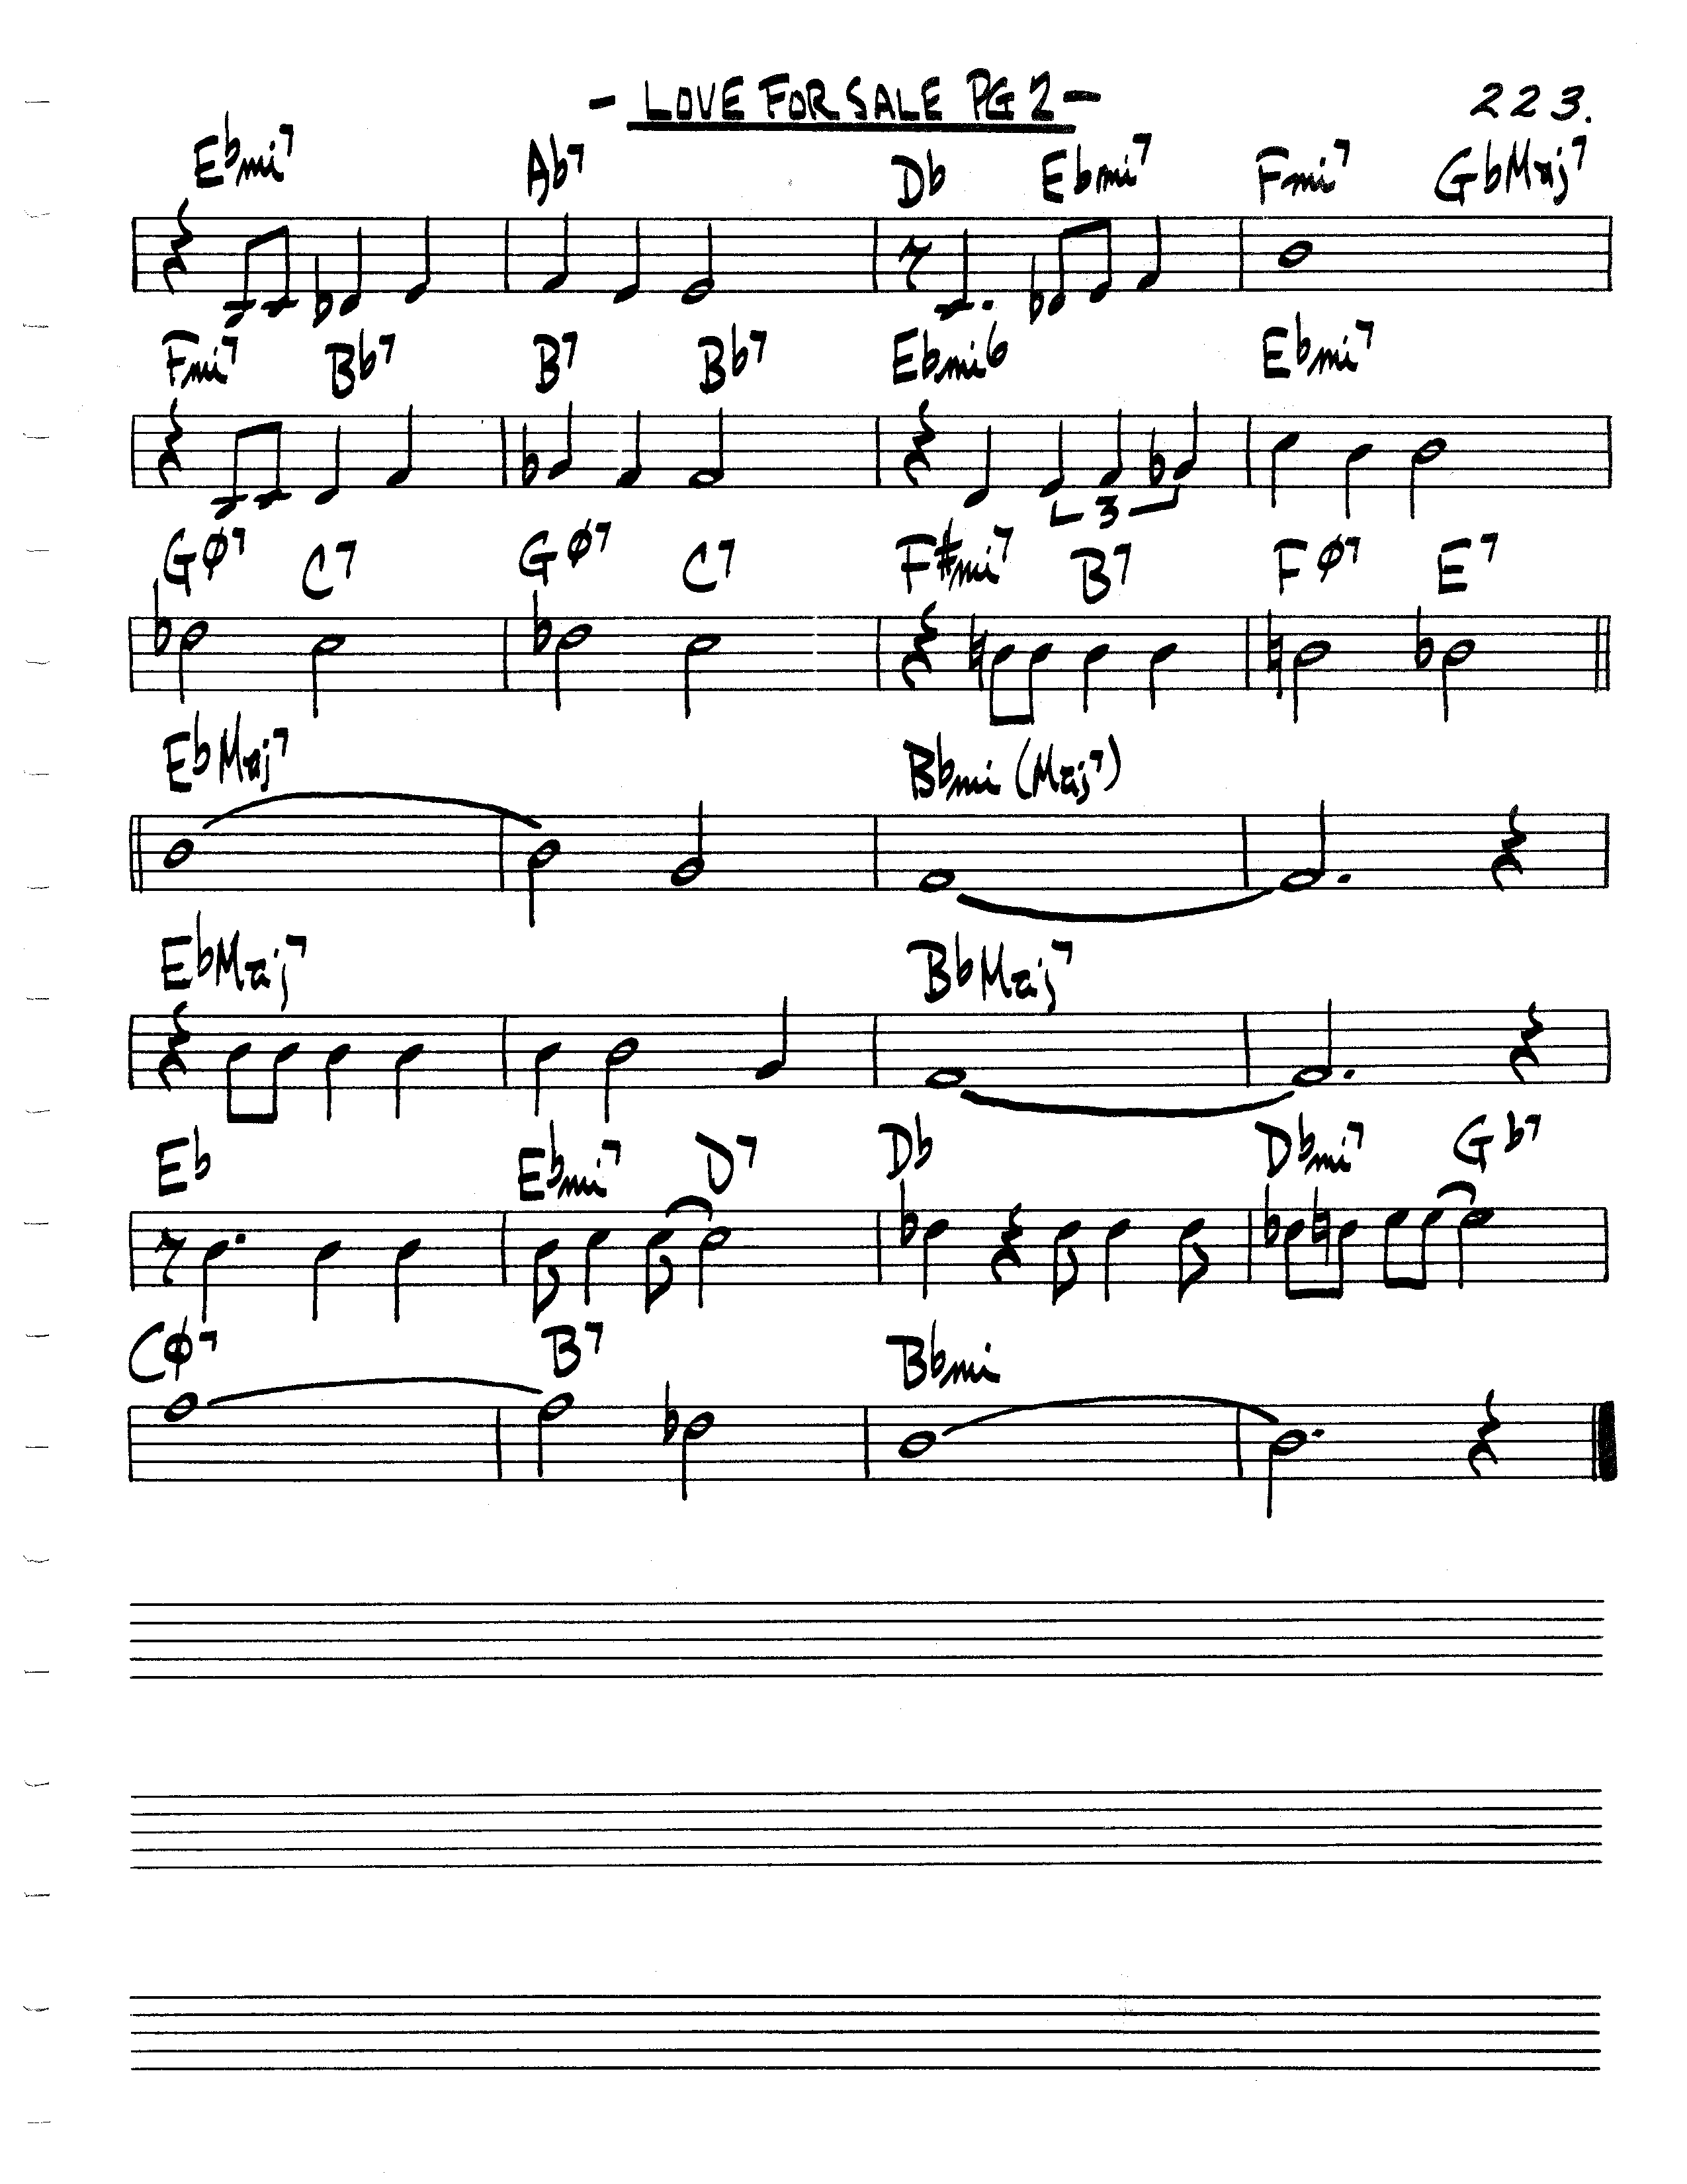 - LOVE FOR SALE PG 2 - 223.
Ebmi7 Ab7 Db Ebmi7 Fmi7 GbMaj7
Fmi7 Bb7 B7 Bb7 Ebmi6 Ebmi7
3
Gø7 C7 Gø7 C7 F#mi7 B7 Fø7 E7
EbMaj7 Bbmi (Maj7)
EbMaj7 BbMaj7
Eb Ebmi7 D7 Db Dbmi7 Gb7
Cø7 B7 Bbmi